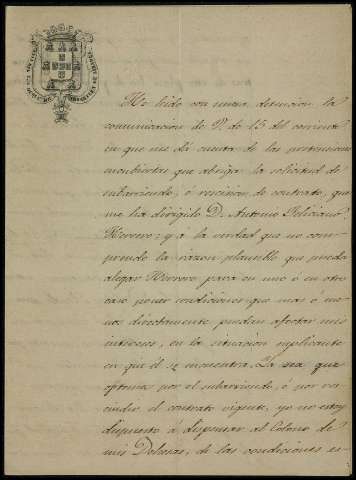 He leido con suma detencion la
comunicacion de V. de 15 del corriente
en que me dá cuenta de las pretensiones
encubiertas que abriga la solicitud de
subarriendo, ó rescision de contrato, que
me ha dirigido D. Antonio Feliciano
Herrero; y á la verdad que no com-
prendo la razon plausible que pueda
alegar Herrero para en uno ó en otro
caso poner condiciones que mas ó me-
nos directamente puedan afectar mis
intereses, en la situacion suplicante
en que él se encuentra. Ya sea que
optemos por el subarriendo, ó por res-
cindir el contrato vigente, yo no estoy
dispuesto á dispensar al Colono de
mis Dehesas, de las condiciones es-